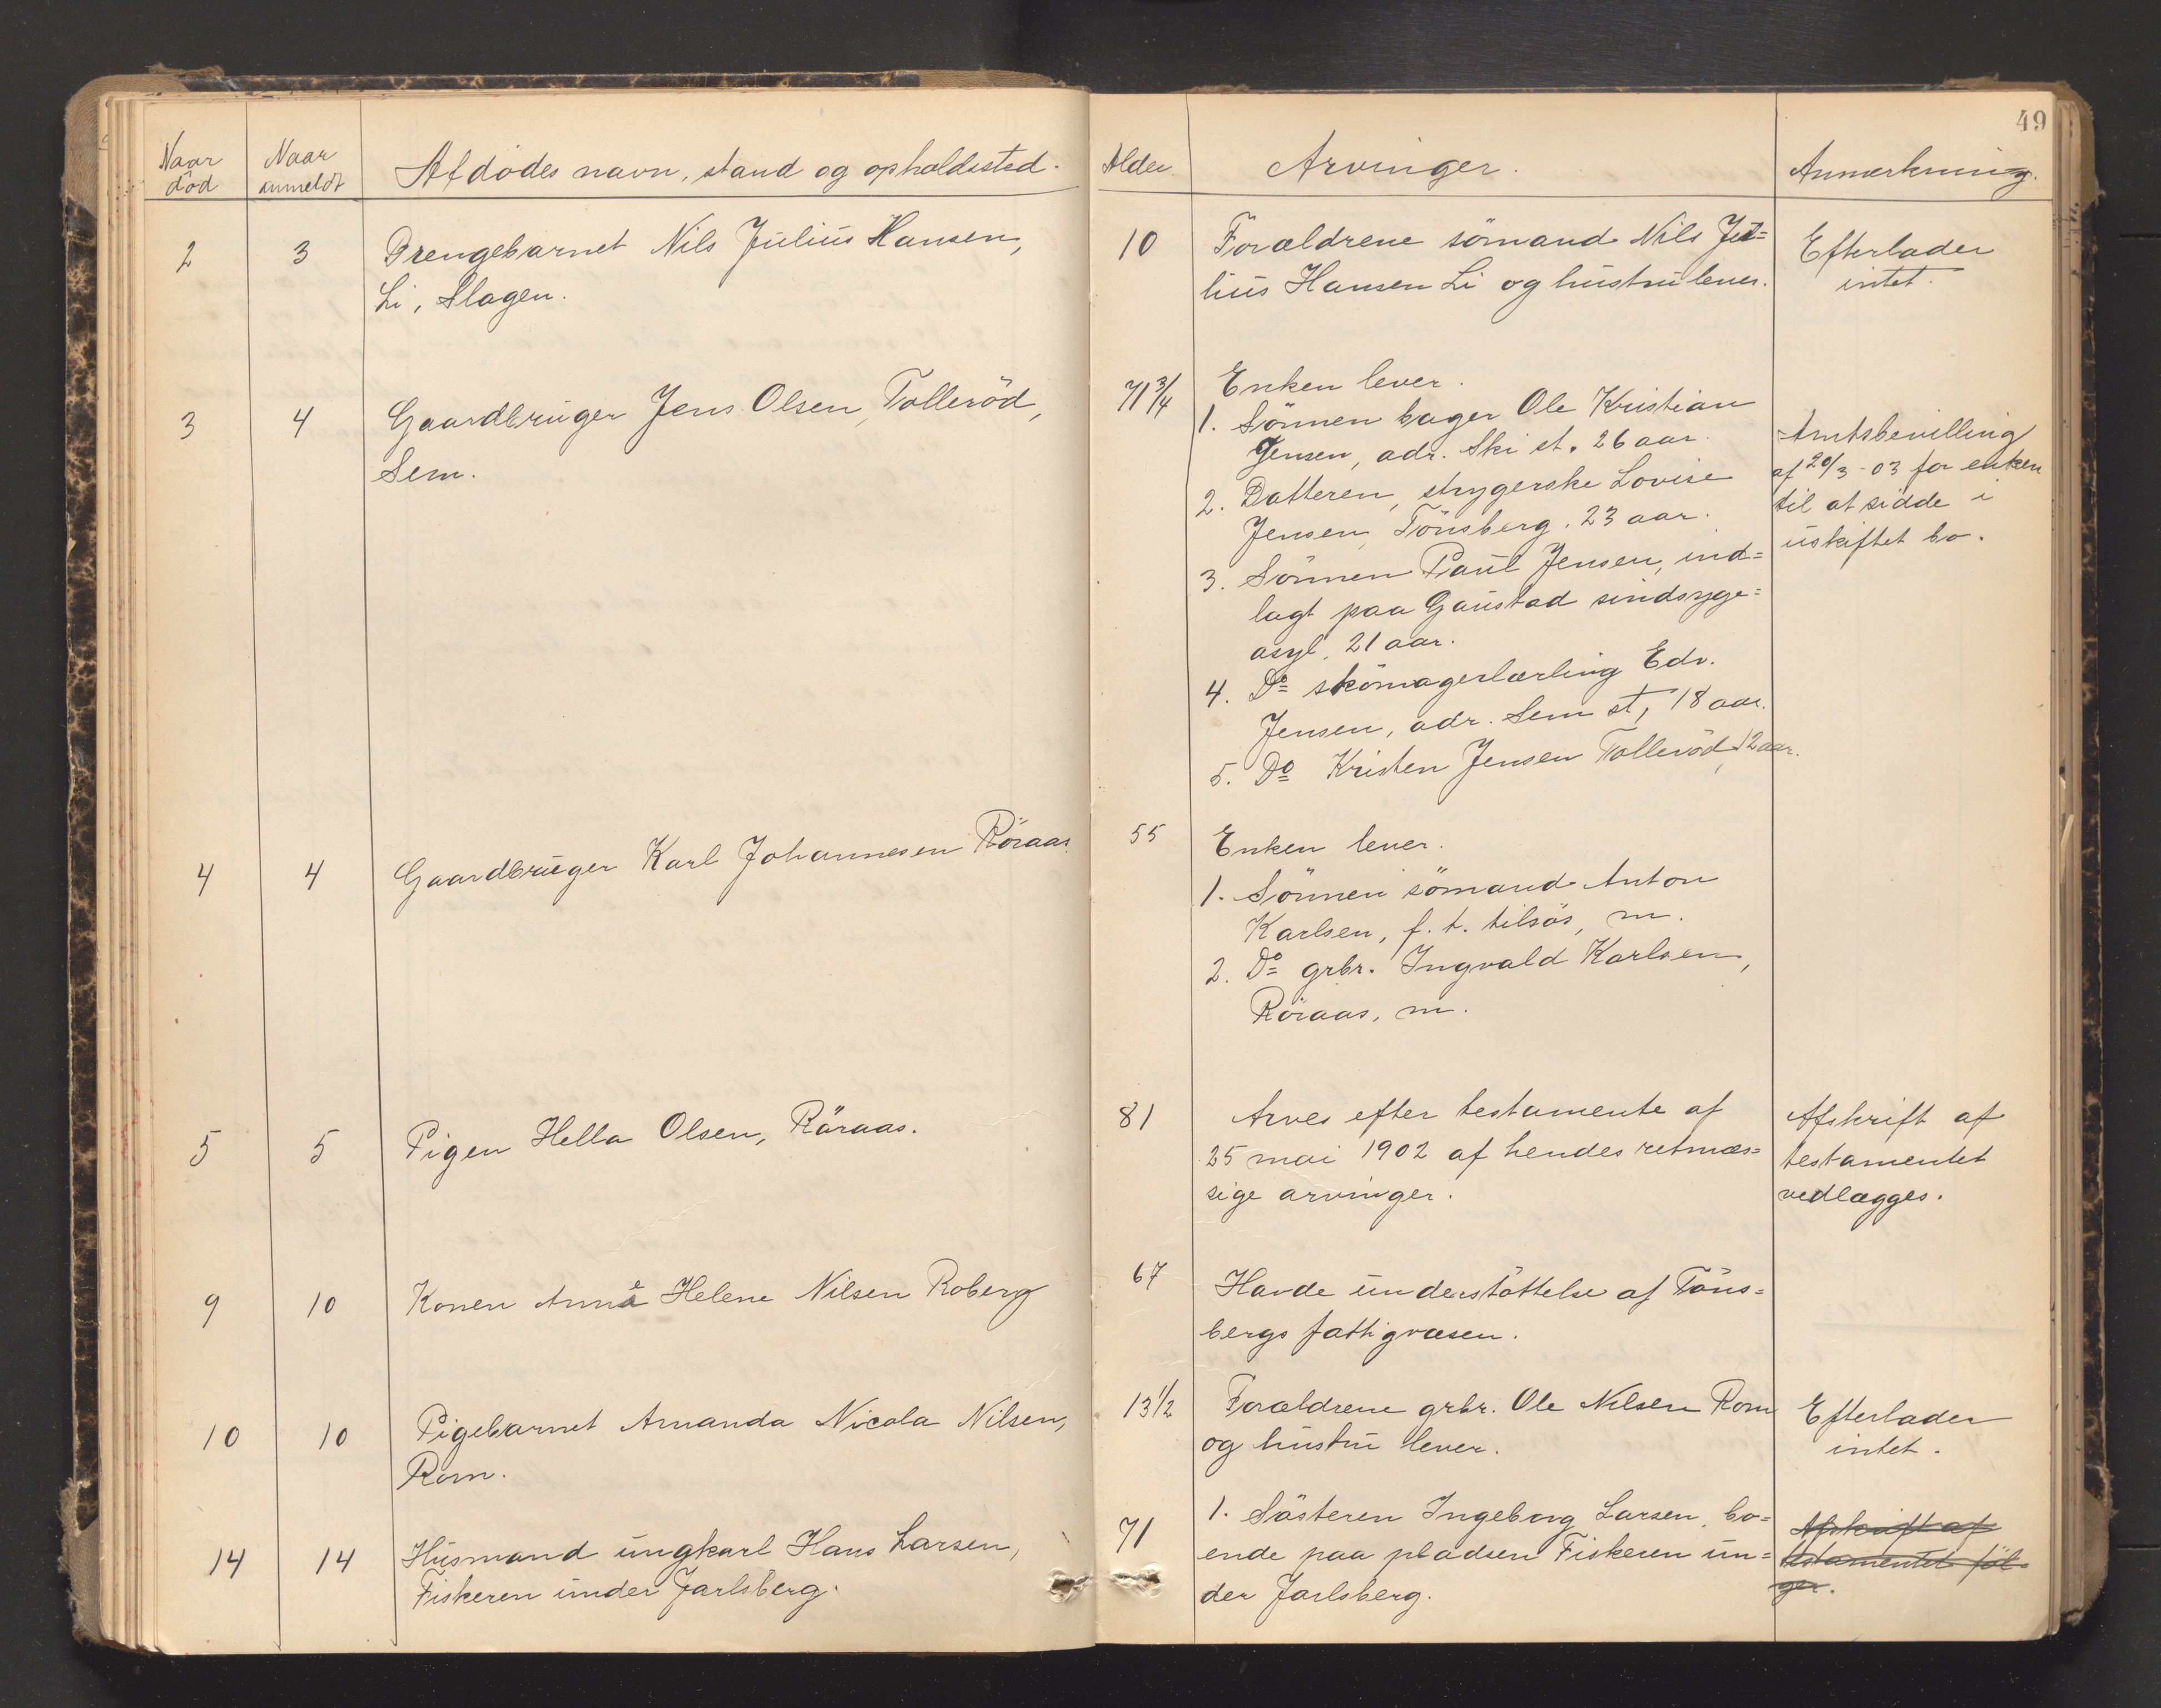 49
Naar død
Naar anmeldt
Afdødes navn, stand og opholdssted.
Alder
Arvinger.
Anmerkning.
2
3
Drengebarnet Nils Julius Hansen,
Li, Slagen.
10
Forældrene sömand Nils Ju=
lius Hansen Li og hustru lever.
Efterlader
intet.
3
4
Gaardbruger Jens Olsen, Tolleröd,
Sem.
71 3/4
Enken lever.
1. Sönnen bager Ole Kristian
Jensen, adr. Ski st. 26 aar.
2. Datteren, strygerske Lovise
Jensen, Tönsberg. 23 aar.
3. Sönnen Paul Jensen, ind=
lagt paa Gaustad sindsyge=
asyl, 21 aar.
4. Do skomagerlærling Edv.
Jensen, adr. Sem st, 18 aar.
5. Do Kristen Jensen Tolleröd, 12 aar.
Amtsbevilling
af 20/3-03 for enken
til at sidde i
uskiftet bo.
4
4
Gaardbruger Karl Johannesen Röraas
55
Enken lever.
1. Sönnen sömand Anton
Karlsen, f. t. tilsös, m.
2. Do grbr. Ingvald Karlsen,
Röraas, m.
5
5
Pigen Hella Olsen, Röraas.
81
Arves efter testamente af
25 mai 1902 af hendes retmæs=
sige arvinger.
Afskrift af
testamentet
vedlægges.
9
10
Konen Anne Helene Nilsen Roberg
67
Havde understöttelse af Töns=
bergs fattigvæsen.
10
10
Pigebarnet Amanda Nicola Nilsen,
Rom.
13 1/2
Forældrene grbr. Ole Nilsen Rom
og hustru lever.
Efterlader
intet.
14
14
Husmand ungkarl Hans Larsen,
Fiskeren under Jarlsberg.
71
1. Sösteren Ingeborg Larsen, bo=
ende paa pladsen Fiskeren un=
der Jarlsberg.
Afskrift af
testamentet föl=
ger.